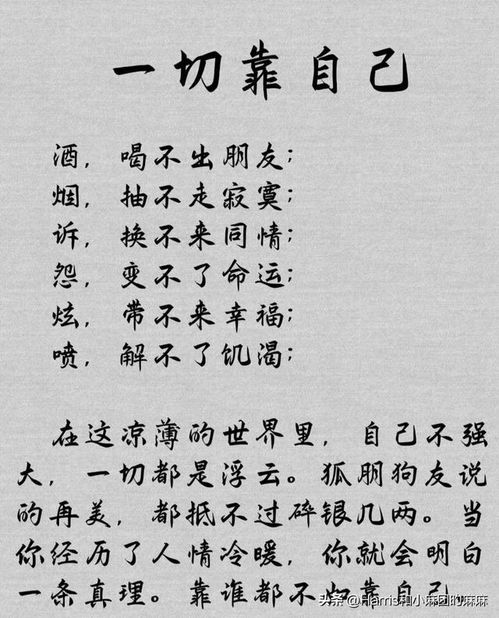 一切靠自己
酒，喝不出朋友；
烟，抽不走寂寞；
诉，换不来同情；
怨，变不了命运；
炫，带不来幸福；
喷，解不了饥渴；
在这凉薄的世界里，自己不强
大，一切都是浮云。狐朋狗友说
的再美，都抵不过碎银几两。当
你经历了人情冷暖，你就会明白
一条真理。靠谁都不如靠自己。
头条 @Harris和小麻团的麻麻